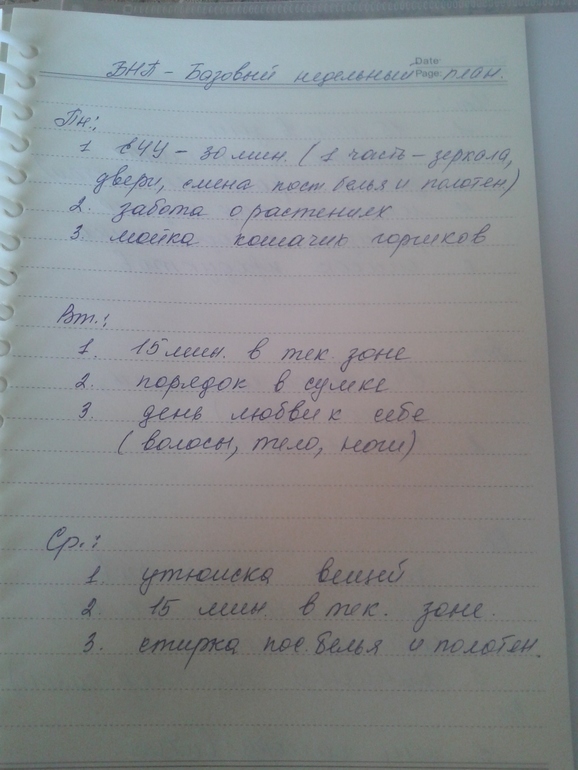 Date:
Page:
БНП - Базовый недельный план.
Пн.:
1 ЕЧУ - 30 мин. (1 часть - зеркала,
двери, смена пост. белья и полотен)
2. забота о растениях
3. мойка кошачих горшков
Вт.:
1. 15 мин. в тек. зоне
2. порядок в сумке
3. день любви к себе
(волосы, тело, ноги)
Ср.:
1. утюжка вещей
2. 15 мин. в тек. зоне.
3. стирка пос. белья и полотен.